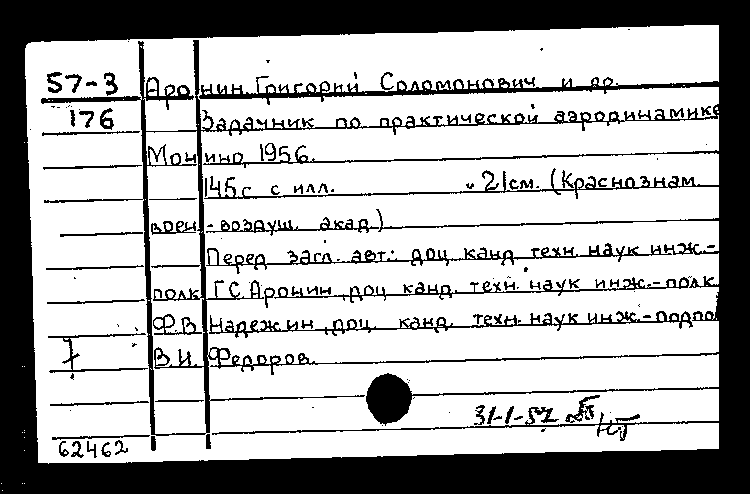 57-3 Аронин, Григорий Соломонович и др.
176 Задачник по практической аэродинамике
Монино, 1956.
145 с. с илл. 21 см. (Краснознам.
воен.-воздуш. акад.)
Перед загл. авт.: доц. канд. техн. наук инж.-
полк. Г.С. Аронин, доц. канд. техн. наук инж.-полк.
Ф.В. Надежин, доц. канд. техн. наук инж.-подпол
В.И. Федоров.
31-1-57
62462